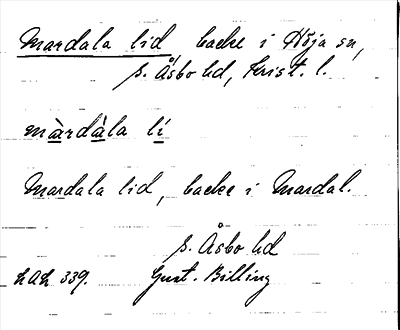 Mardala lid, backe i Höja sn,
S. Åsbo hd, Krist. l.
màrdàla lí
Mardala lid, backe i Mardal.
S. Åsbo hd
h a h 339. Gust. Billing